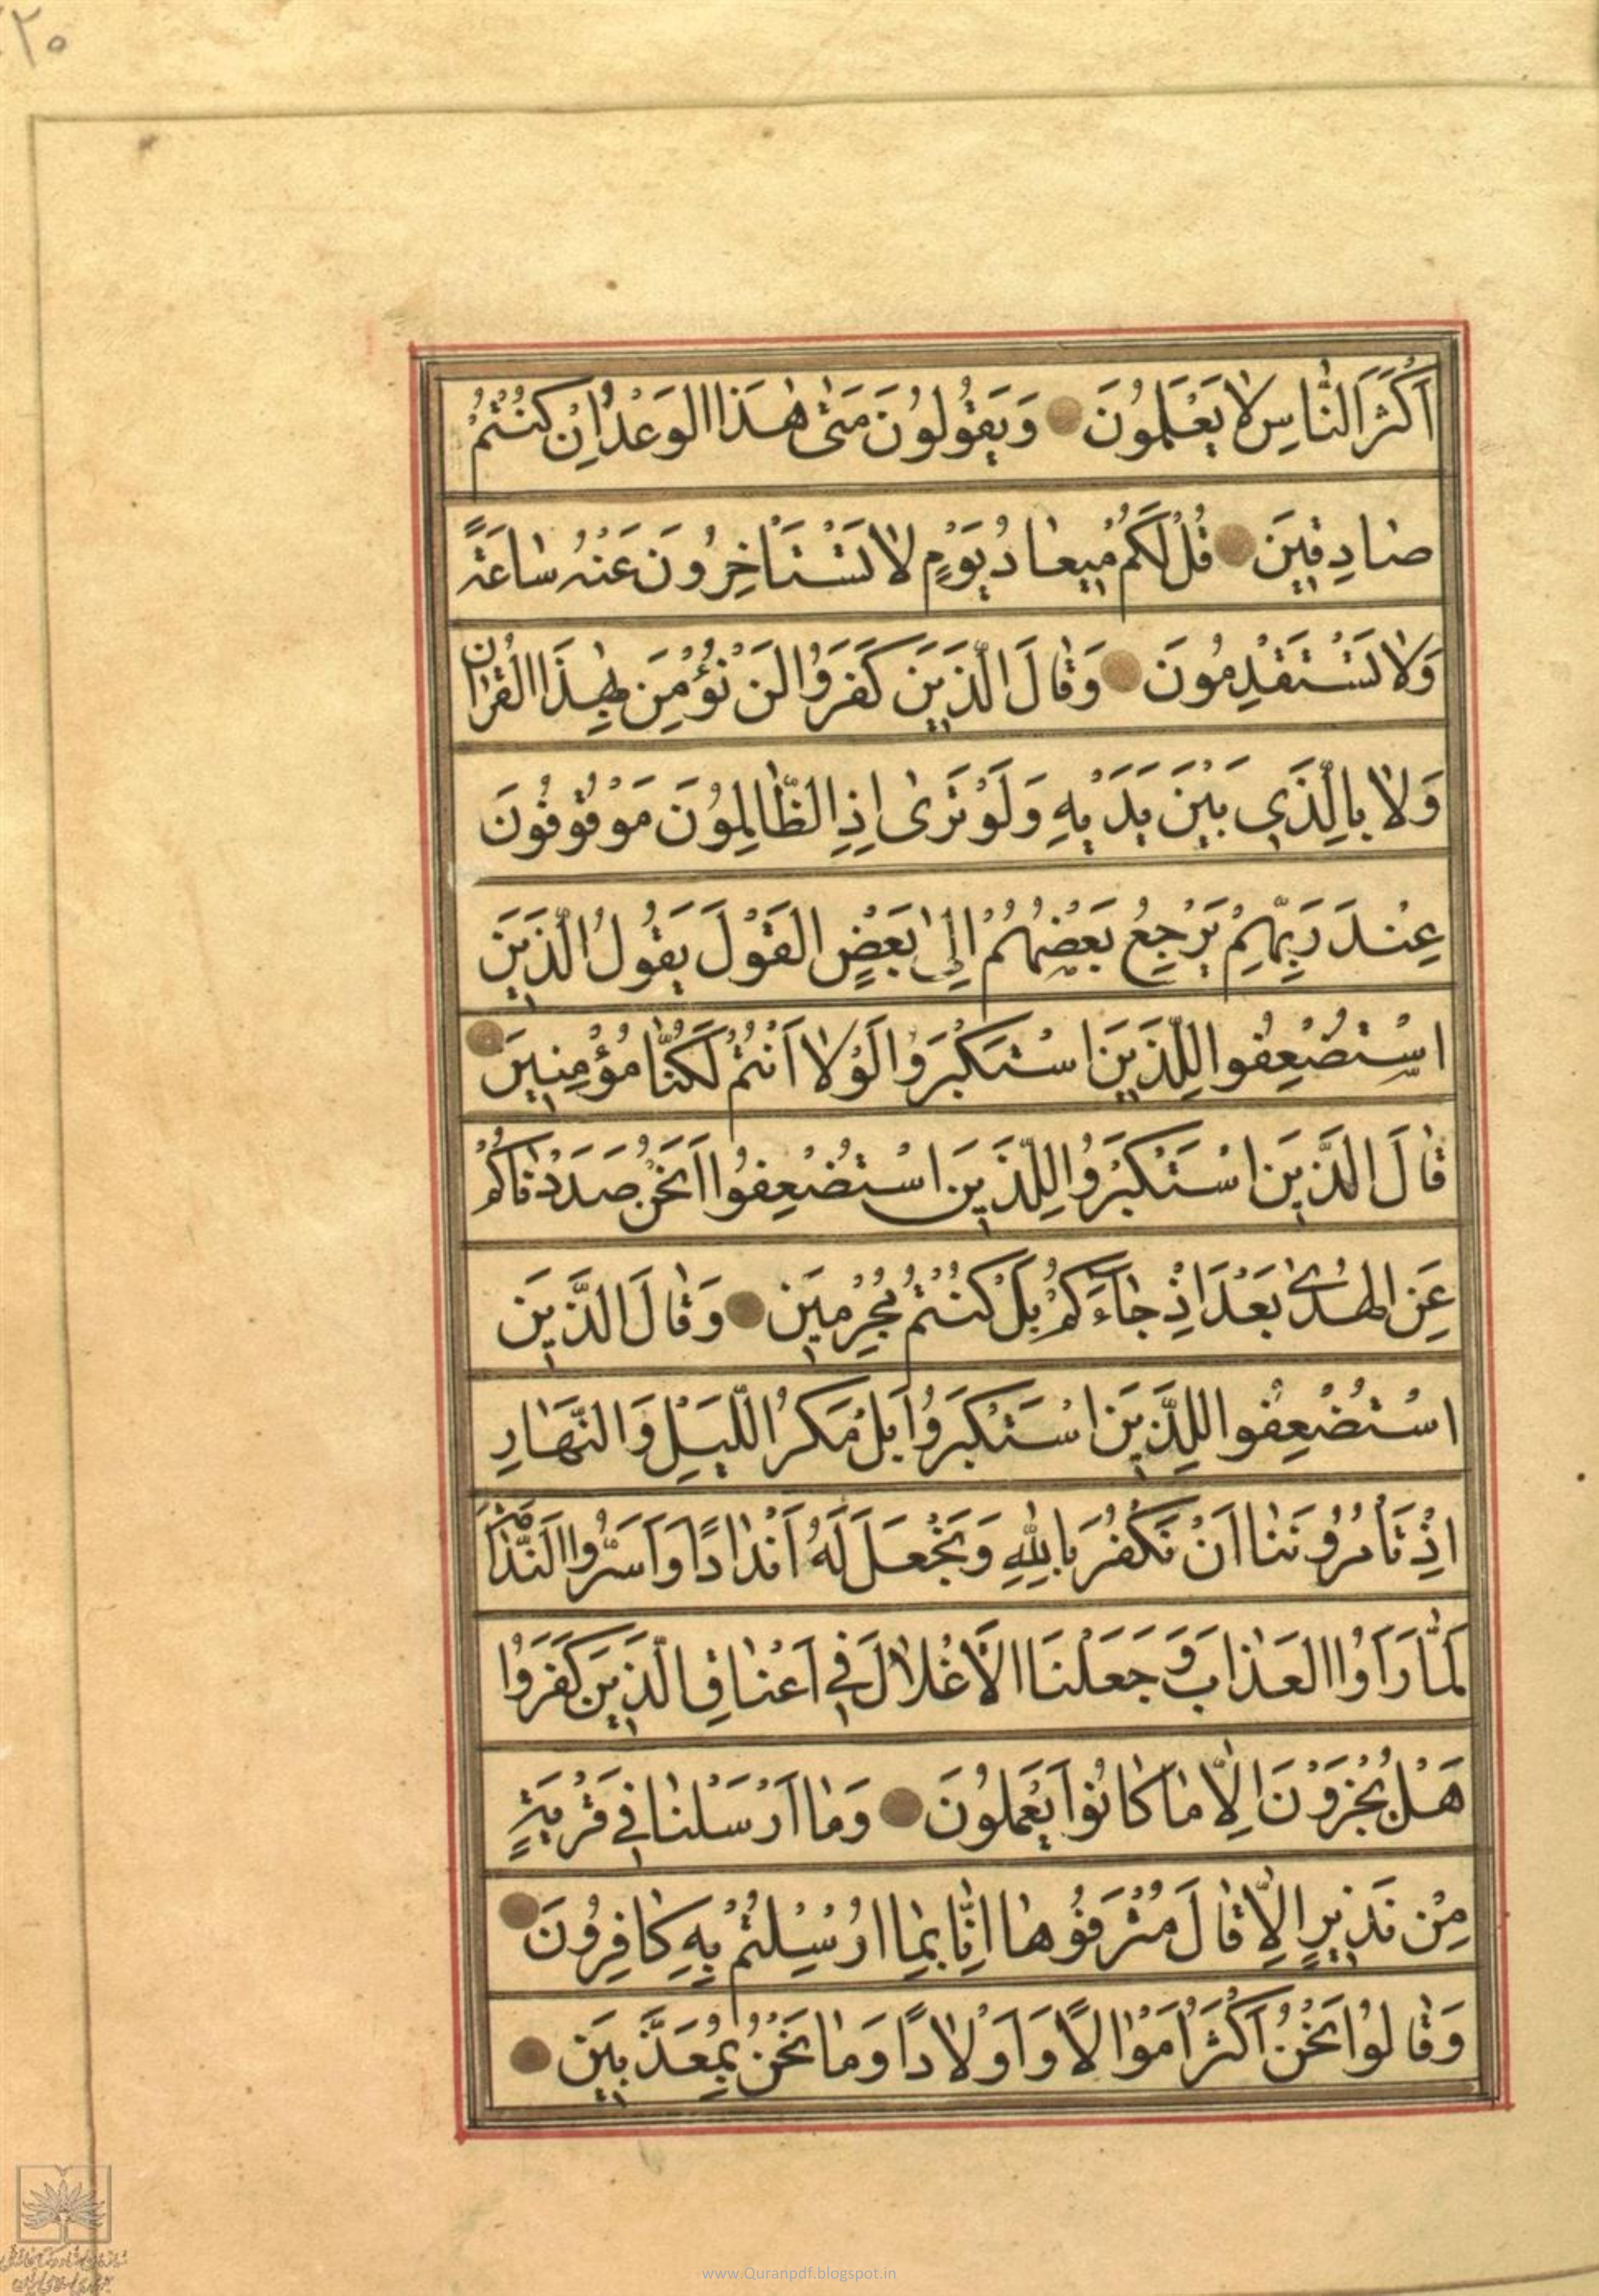 ۲۰
اَكْثَرَ النّٰاسِ لاٰ يَعْلَمُونَ وَيَقُولُونَ مَتىٰ هٰذَا الوَعْدُ اِنْ كُنْتُمْ
صٰادِقينَ قُلْ لَكُمْ ميعٰادُ يَوْمٍ لاٰ تَسْتَاْخِرُونَ عَنْهُ سٰاعَةً
وَلاٰ تَسْتَقْدِمُونَ وَقٰالَ الَّذينَ كَفَرُوا لَنْ نُؤْمِنَ بِهٰذَا الْقُرْاٰنِ
وَلاٰ بِالَّذي بَيْنَ يَدَيْهِ وَلَوْ تَرىٰ اِذِ الظّٰالِمُونَ مَوْقُوفُونَ
عِنْدَ رَبِّهِمْ يَرْجِعُ بَعْضُهُمْ اِلىٰ بَعْضٍ القَوْلَ يَقُولُ الَّذينَ
اسْتُضْعِفُوا لِلَّذينَ اسْتَكْبَرُوا لَوْلاٰ اَنْتُمْ لَكُنّٰا مُؤْمِنينَ
قٰالَ الَّذينَ اسْتَكْبَرُوا لِلَّذينَ اسْتُضْعِفُوا اَنَحْنُ صَدَدْنٰاكُمْ
عَنِ الهُدىٰ بَعْدَ اِذْ جٰاءَكُمْ بَلْ كُنْتُمْ مُجْرِمينَ وَقٰالَ الَّذينَ
اسْتُضْعِفُوا لِلَّذينَ اسْتَكْبَرُوا بَلْ مَكْرُ اللَّيْلِ وَالنَّهٰارِ
اِذْ تَأْمُرُونَنٰا اَنْ نَكْفُرَ بِاللّٰهِ وَنَجْعَلَ لَهُ اَنْدٰادًا وَاَسَرُّوا النَّدٰامَةَ
لَمّٰا رَاَوُا العَذٰابَ وَجَعَلْنَا الْاَغْلاٰلَ في اَعْنٰاقِ الَّذينَ كَفَرُوا
هَلْ يُجْزَوْنَ اِلّاٰ مٰا كٰانُوا يَعْمَلُونَ وَمٰا اَرْسَلْنٰا في قَرْيَةٍ
مِنْ نَذيرٍ اِلّاٰ قٰالَ مُتْرَفُوهٰا اِنّٰا بِمٰا اُرْسِلْتُمْ بِهِ كٰافِرُونَ
وَقٰالُوا نَحْنُ اَكْثَرُ اَمْوٰالًا وَاَوْلاٰدًا وَمٰا نَحْنُ بِمُعَذَّبينَ
www.Quranpdf.blogspot.in